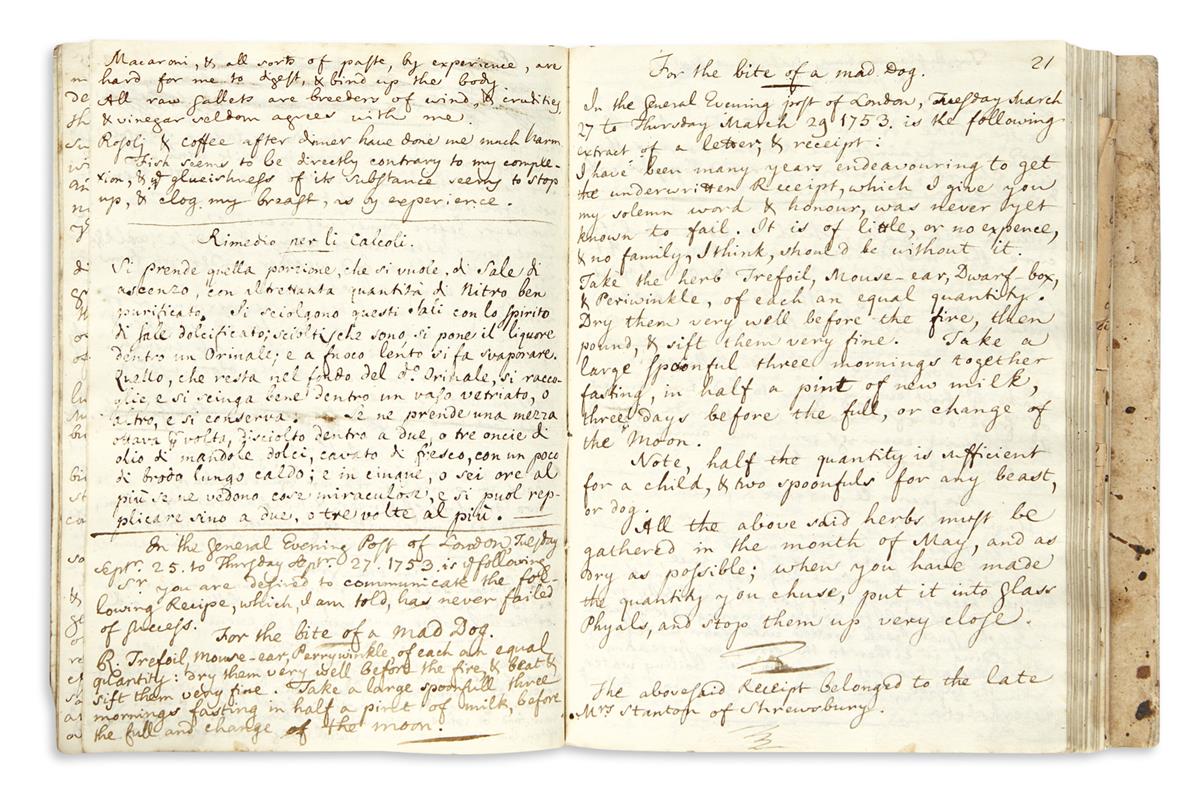 Macaroni, & all sorts of paste, by experience, are
hard for me to digest, & bind up the body.
All raw sallets are breeders of wind, & crudities,
& vinegar seldom agrees with me.
Rosolj & coffee after dinner have done me much harm
Fish seems to be directly contrary to my comple-
xion, & ye glueishness of its substance seems to stop
up, & clog my breast, as by experience.
Rimedio per li Calcoli.
Si prende quella porzione, che si vuole, di Sale di
ascenzo, con altrettanta quantità di Nitro ben
purificato. Si sciolgono questi Sali con lo Spirito
di Sale dolcificato; sciolti che sono, si pone il liquore
dentro un Orinale; e a fuoco lento si fa svaporare.
Quello, che resta nel fondo del do. Orinale, si racco-
glie, e si sciuga bene dentro un vaso vetriato, o
altro, e si conserva. Se ne prende una mezza
ottava p volta, disciolto dentro a due, o tre oncie di
olio di mandole dolci, cavato di fresco, con un poco
di brodo lungo caldo; e in cinque, o sei ore al
più se ne vedono cose miraculose, e si puol rep-
plicare sino a due, o tre volte al più.
In the General Evening Post of London, Tuesday
Septr. 25. to Thursday Septr. 27. 1753. is ye following
Sr. you are desired to communicate the fol-
lowing Recipe, which, I am told, has never failed
of success.
For the bite of a mad Dog.
R. Trefoil, Mouse-ear, Perrywinkle, of each an equal
quantity: dry them very well before the fire, & beat &
sift them very fine. Take a large spoonfull three
mornings fasting in half a pint of milk, before
the full and change of the moon.
21
For the bite of a mad Dog.
In the General Evening post of London, Tuesday March
27 to Thursday March 29 1753. is the following
extract of a letter, & receipt:
I have been many years endeavouring to get
the underwritten Receipt, which I give you
my solemn word & honour, was never yet
known to fail. It is of little, or no expence,
& no family, I think, should be without it.
Take the herb Trefoil, Mouse-ear, Dwarf box,
& Periwinkle, of each an equal quantity.
Dry them very well before the fire, then
pound, & sift them very fine. Take a
large spoonful three mornings together
fasting, in half a pint of new milk,
three days before the full, or change of
the Moon.
Note, half the quantity is sufficient
for a child, & two spoonfuls for any beast,
or dog.
All the above said herbs must be
gathered in the month of May, and as
dry as possible; when you have made
the quantity you chuse, put it into Glass
Phyals, and stop them up very close.
The abovesaid Receipt belonged to the late
Mrs Stanton of Shrewsbury.